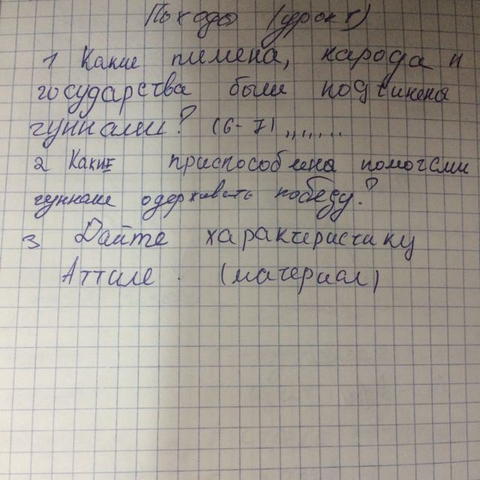 Походы (урок 1)
1 Какие племена, народа и
государства были подчинена
гуннами? (6-7) ,,,,,,,
2 Какие приспособлена помогами
гуннам одерживать победу?
3 Дайте характеристику
Аттиле. (материал)